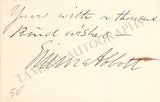 Yours with a thousand
kind wishes
Emma Abbott
86
TAMINO AUTOGRAPHS